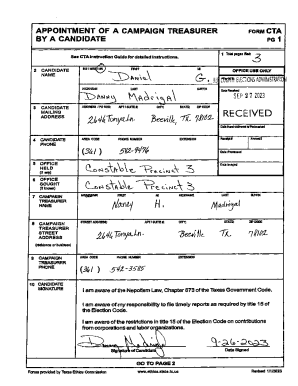 APPOINTMENT OF A CAMPAIGN TREASURER BY A CANDIDATE
FORM CTA
PG 1
See CTA Instruction Guide for detailed instructions.
1 Total pages filed: 3
2 CANDIDATE NAME
FIRST
MI
Daniel G.
OFFICE USE ONLY
NICKNAME LAST SUFFIX
Danny Madrigal
ELECTIONS ADMINISTRATION
Date Received
SEP 27 2023
RECEIVED
3 CANDIDATE MAILING ADDRESS
CITY; STATE; ZIP CODE
2646 Tonya Ln. Beeville, TX 78102
Date Hand-delivered or Postmarked
4 CANDIDATE PHONE
AREA CODE PHONE NUMBER EXTENSION
(361)
Receipt #
Amount $
Date Processed
5 OFFICE HELD
(if any)
Constable Precinct 3
Date Imaged
6 OFFICE SOUGHT
(if known)
Constable Precinct 3
7 CAMPAIGN TREASURER NAME
FIRST MI LAST SUFFIX
Nancy H. Madrigal
8 CAMPAIGN TREASURER STREET ADDRESS
(residence or business)
STREET ADDRESS; APT / SUITE #; CITY; STATE; ZIP CODE
2646 Tonya Ln. Beeville TX 78102
9 CAMPAIGN TREASURER PHONE
AREA CODE PHONE NUMBER EXTENSION
(361) 542-3585
10 CANDIDATE SIGNATURE
I am aware of the Nepotism Law, Chapter 573 of the Texas Government Code.
I am aware of my responsibility to file timely reports as required by title 15 of the Election Code.
I am aware of the restrictions in title 15 of the Election Code on contributions from corporations and labor organizations.
Danny Madrigal
9-26-2023
Signature of Candidate
Date Signed
GO TO PAGE 2
Forms provided by Texas Ethics Commission
www.ethics.state.tx.us